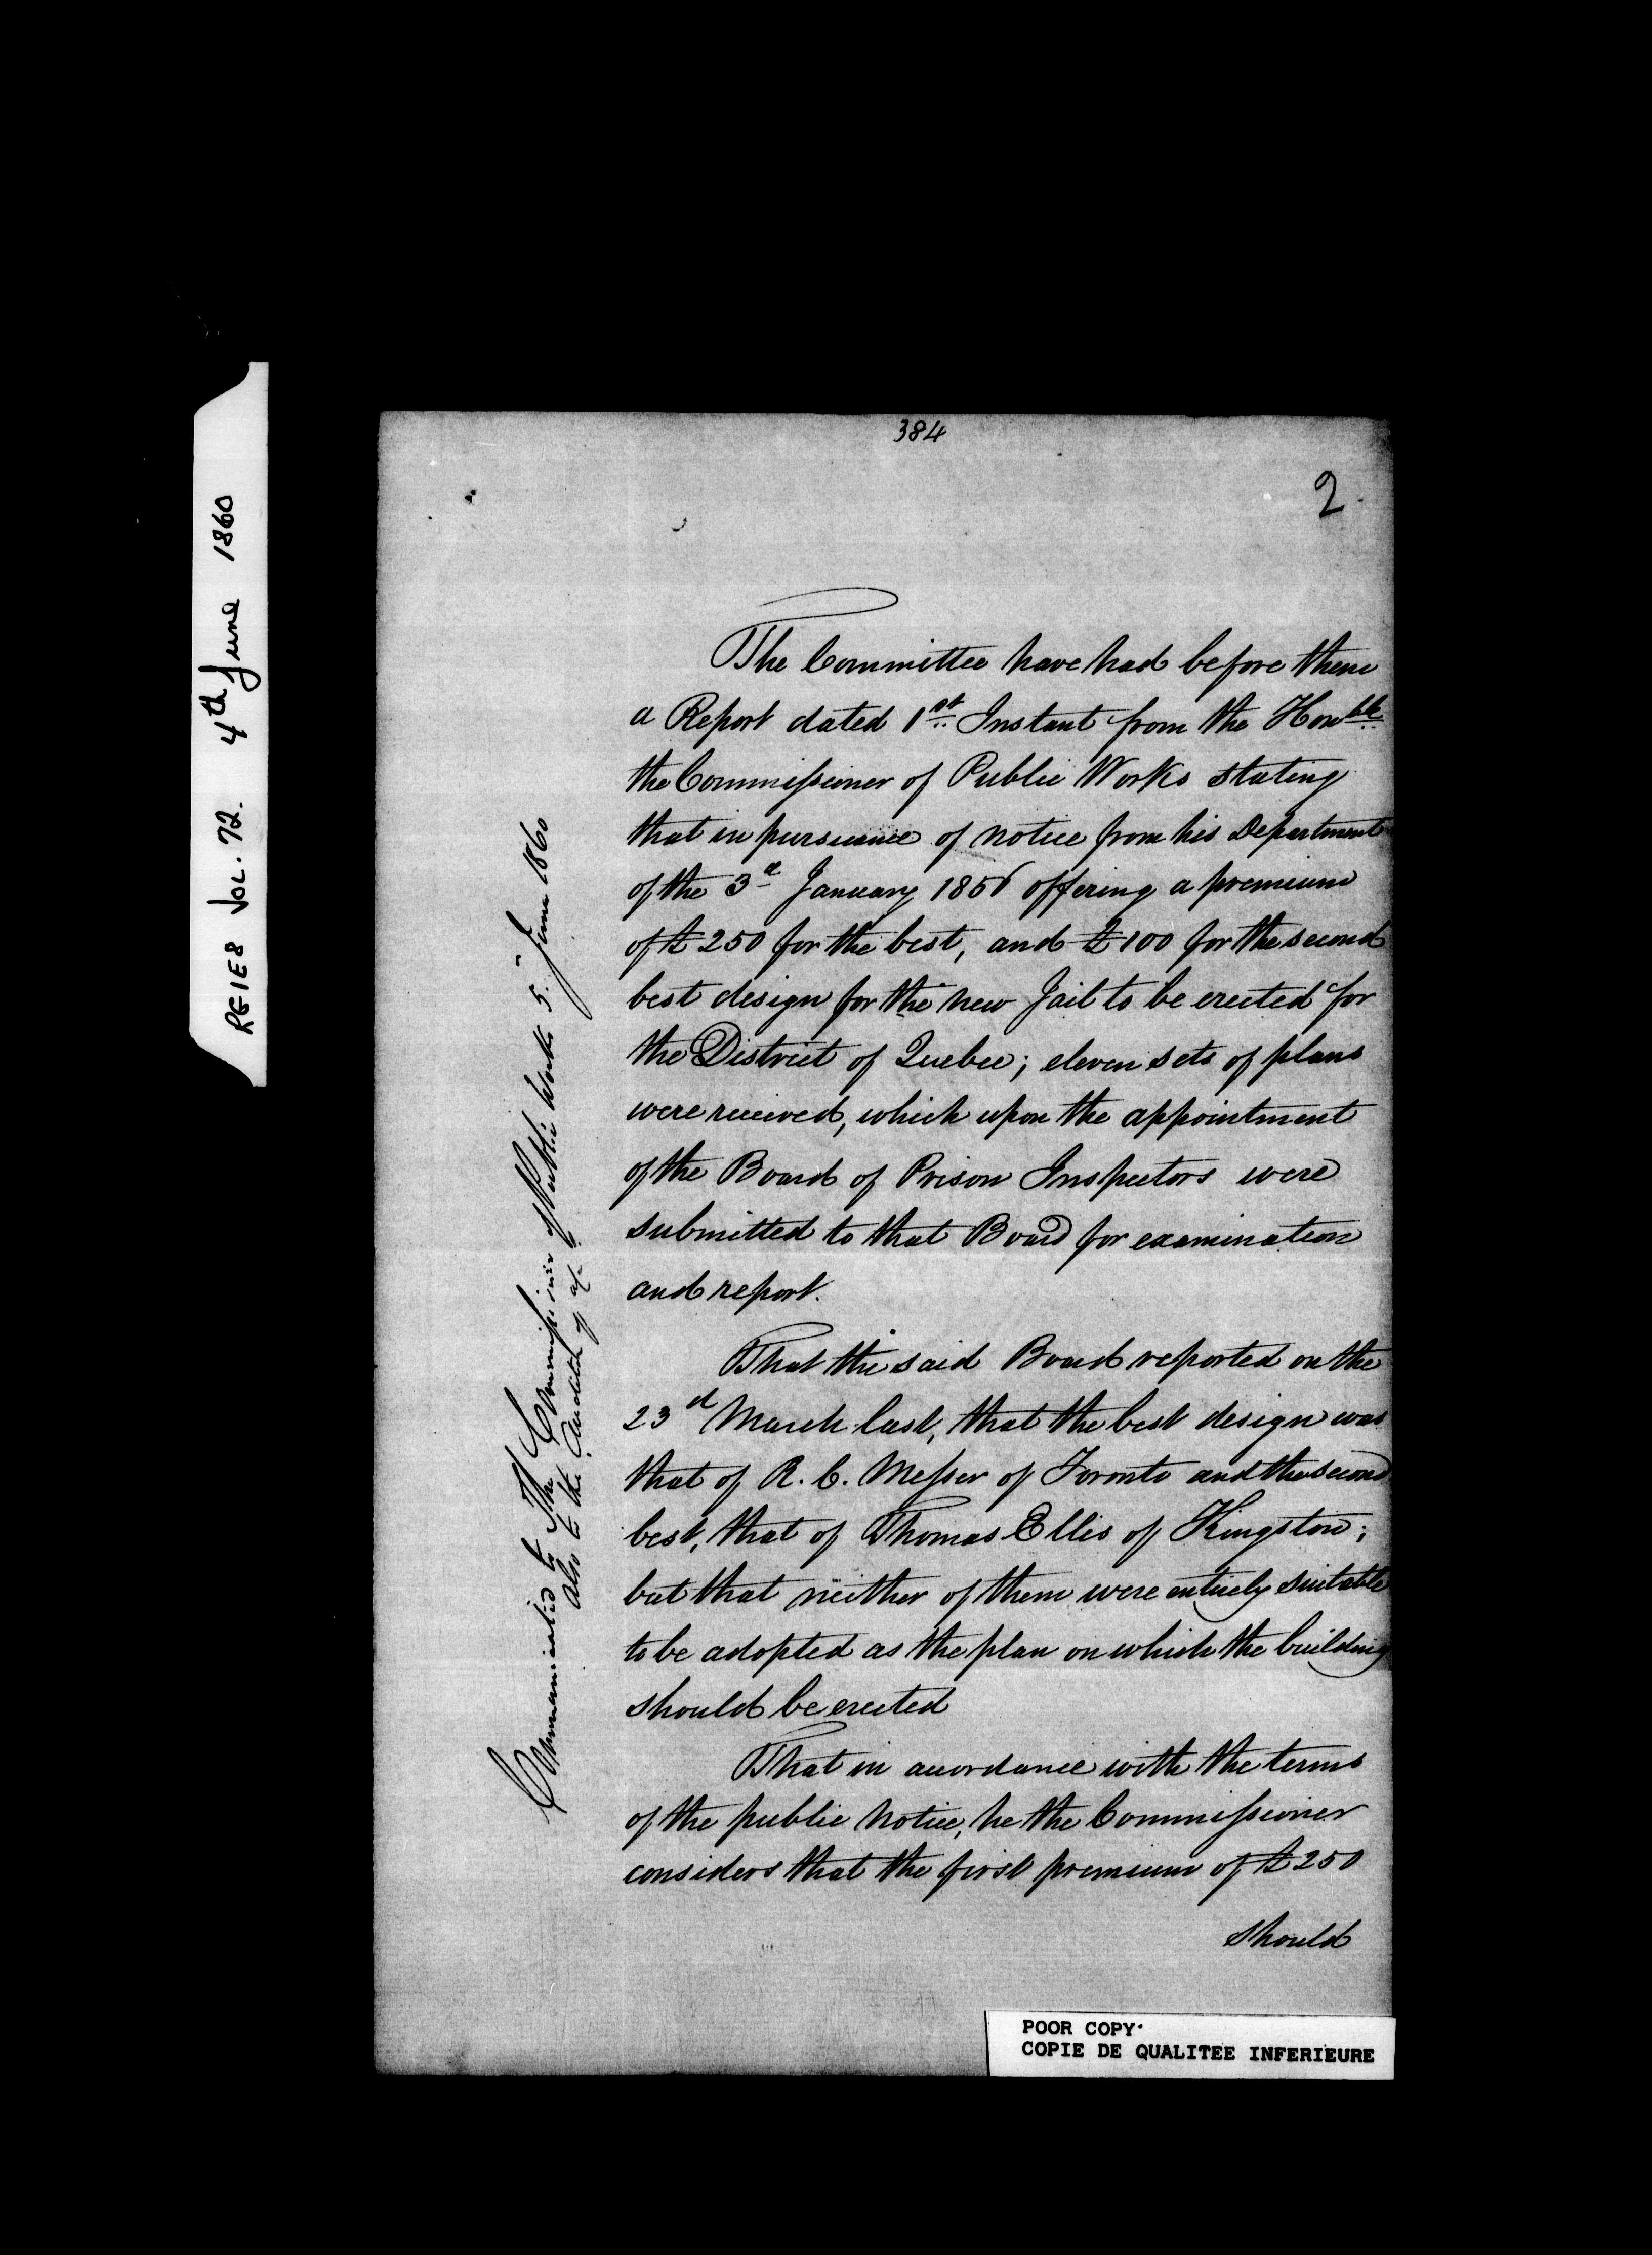 384
2
RG1E8 VOL. 72. 4th June 1860
Communicated to The Commissioner of Public Works 5. June 1860
also to the Auditor of a/c
The Committee have had before them
a Report dated 1st Instant from the Honble
the Commissioner of Public Works stating
that in pursuance of notice from his Department
of the 3d January 1856 offering a premium
of £250 for the best, and £100 for the second
best design for the new Jail to be erected for
the District of Quebec; eleven sets of plans
were received, which upon the appointment
of the Board of Prison Inspectors were
submitted to that Board for examination
and report.
That the said Board reported on the
23d March last, that the best design was
that of R. C. Messer of Toronto and the second
best, that of Thomas Ellis of Kingston;
but that neither of them were entirely suitable
to be adopted as the plan on which the building
should be erected
That in accordance with the terms
of the public notice, he the Commissioner
considers that the first premium of £250
should
POOR COPY
COPIE DE QUALITEE INFERIEURE